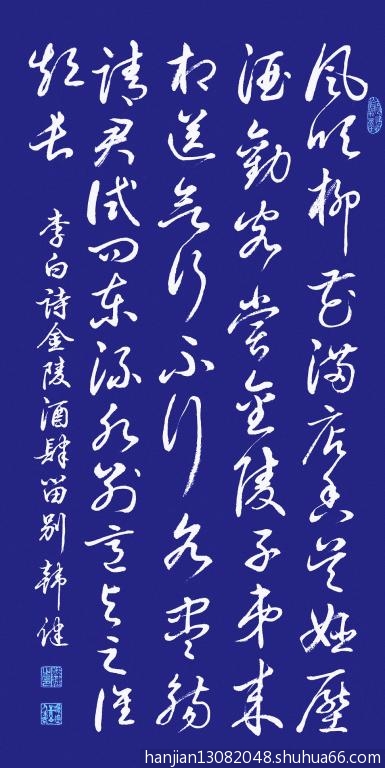 風吹柳花滿店香吳姬壓
酒勸客嘗金陵子弟來
相送欲行不行各盡觴
請君試問東流水別意與之誰
短長
李白詩金陵酒肆留別 韓健
hanjian13082048.shuhua66.com